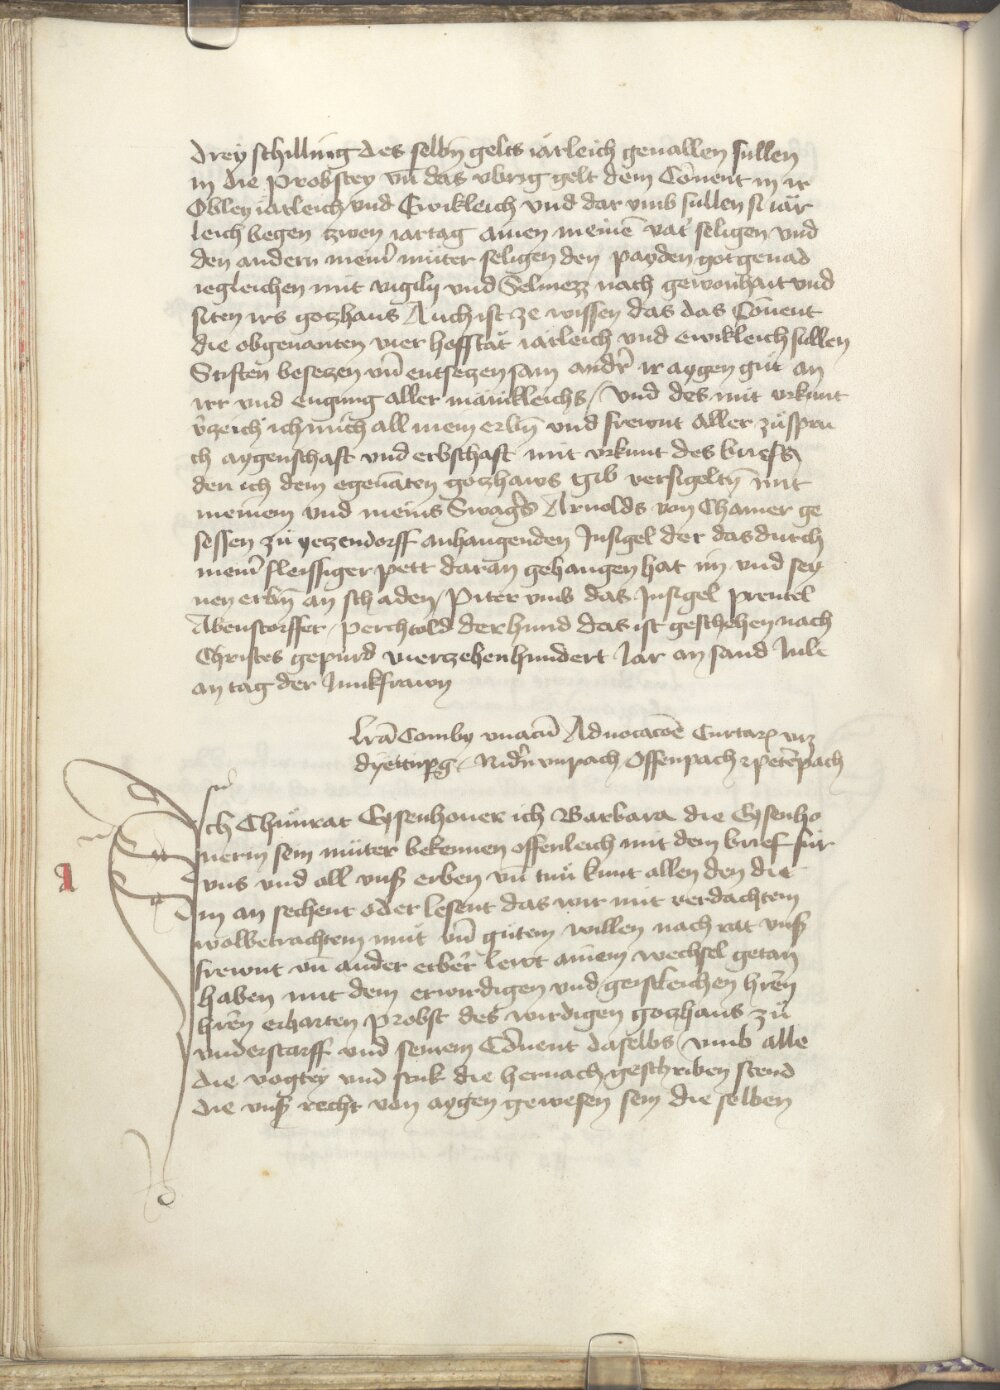 drey schilling des selbñ gelts iärleich geuallen sullen
in die Probstey vñ das vbrig gelt dem Cõuent in ir
Obley iärleich vnd Ewikleich vnd dar vmb sullen si iär
leich begen zwen iartag ainen meinẽ vat' seligen vnd
den andern mein' müter seligen den payden got genad
iegleichen mit vigilij vnd Selmezz nach gewonhait vnd
siten irs gotzhaus Auch ist ze wissen das das Cõuent
die obgenanten vier hofstät iärleich vnd ewikleich sullen
Stiften besetzen vñ entsetzen sam and'r ir aygen güt an
irr vnd engung aller mänikleichs / Vnd des mit vrkunt
v'zeich ich mich all mein erbñ vnd frewnt aller züspru
ch aygenschaft vnd erbschaft mit vrkunt des briefs
den ich dem egenãten gotzhaws gib versigeltñ mit
meinem vnd meins Swag's Arnolds von Chamer ge
sessen zü yetzendorff anhangenden Insigel der das durch
mein' fleissiger pett daran gehangen hat im vnd sey
nen erbñ an schaden / Piter vmb das Insigel Prentel
Abenstorffer / Perchtold der hund das ist geschehen nach
Christes gepurd vierzehenhundert Jar an sand Jule
an tag der Junkfrawn
Lrã Comby vnacũ Aduocacõe Curiarꝝ vz
Nid'n vrpach Offenpach ⁊ petẽpach
Ich Chünrat Eysenhouer ich Barbara die Eysenho
uerin sein müter bekennen offenleich mit dem brief für
vns vnd all vnß erben vñ tuň kunt allen den die
in an sechent oder lesent das wir mit verdachtem
wolbetrachtem müt vñ gütem willen nach rat vnß
frewnt vñ ander erber' lewt ainem wechsel getan
haben mit dem erwirdigen vnd geistleichen hrẽn
hrẽn erharten Probst des wirdigen gotzhaus zü
vnderstarff vnd seinem Cõuent daselbs vmb alle
die vogtey vnd stuk die hernach geschriben stend
die vnß recht von aygen gewesen sein die selben